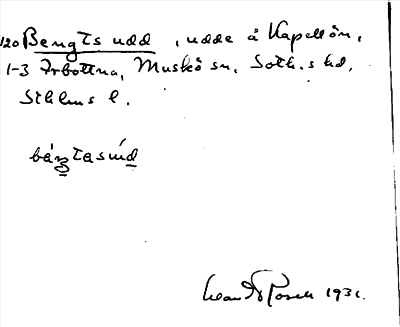 120 Bengts udd, udde å Kapellön,
1-3 Arbottna, Muskö sn, Soth.s hd,
Sthlms l.
báŋtasùd
1931.